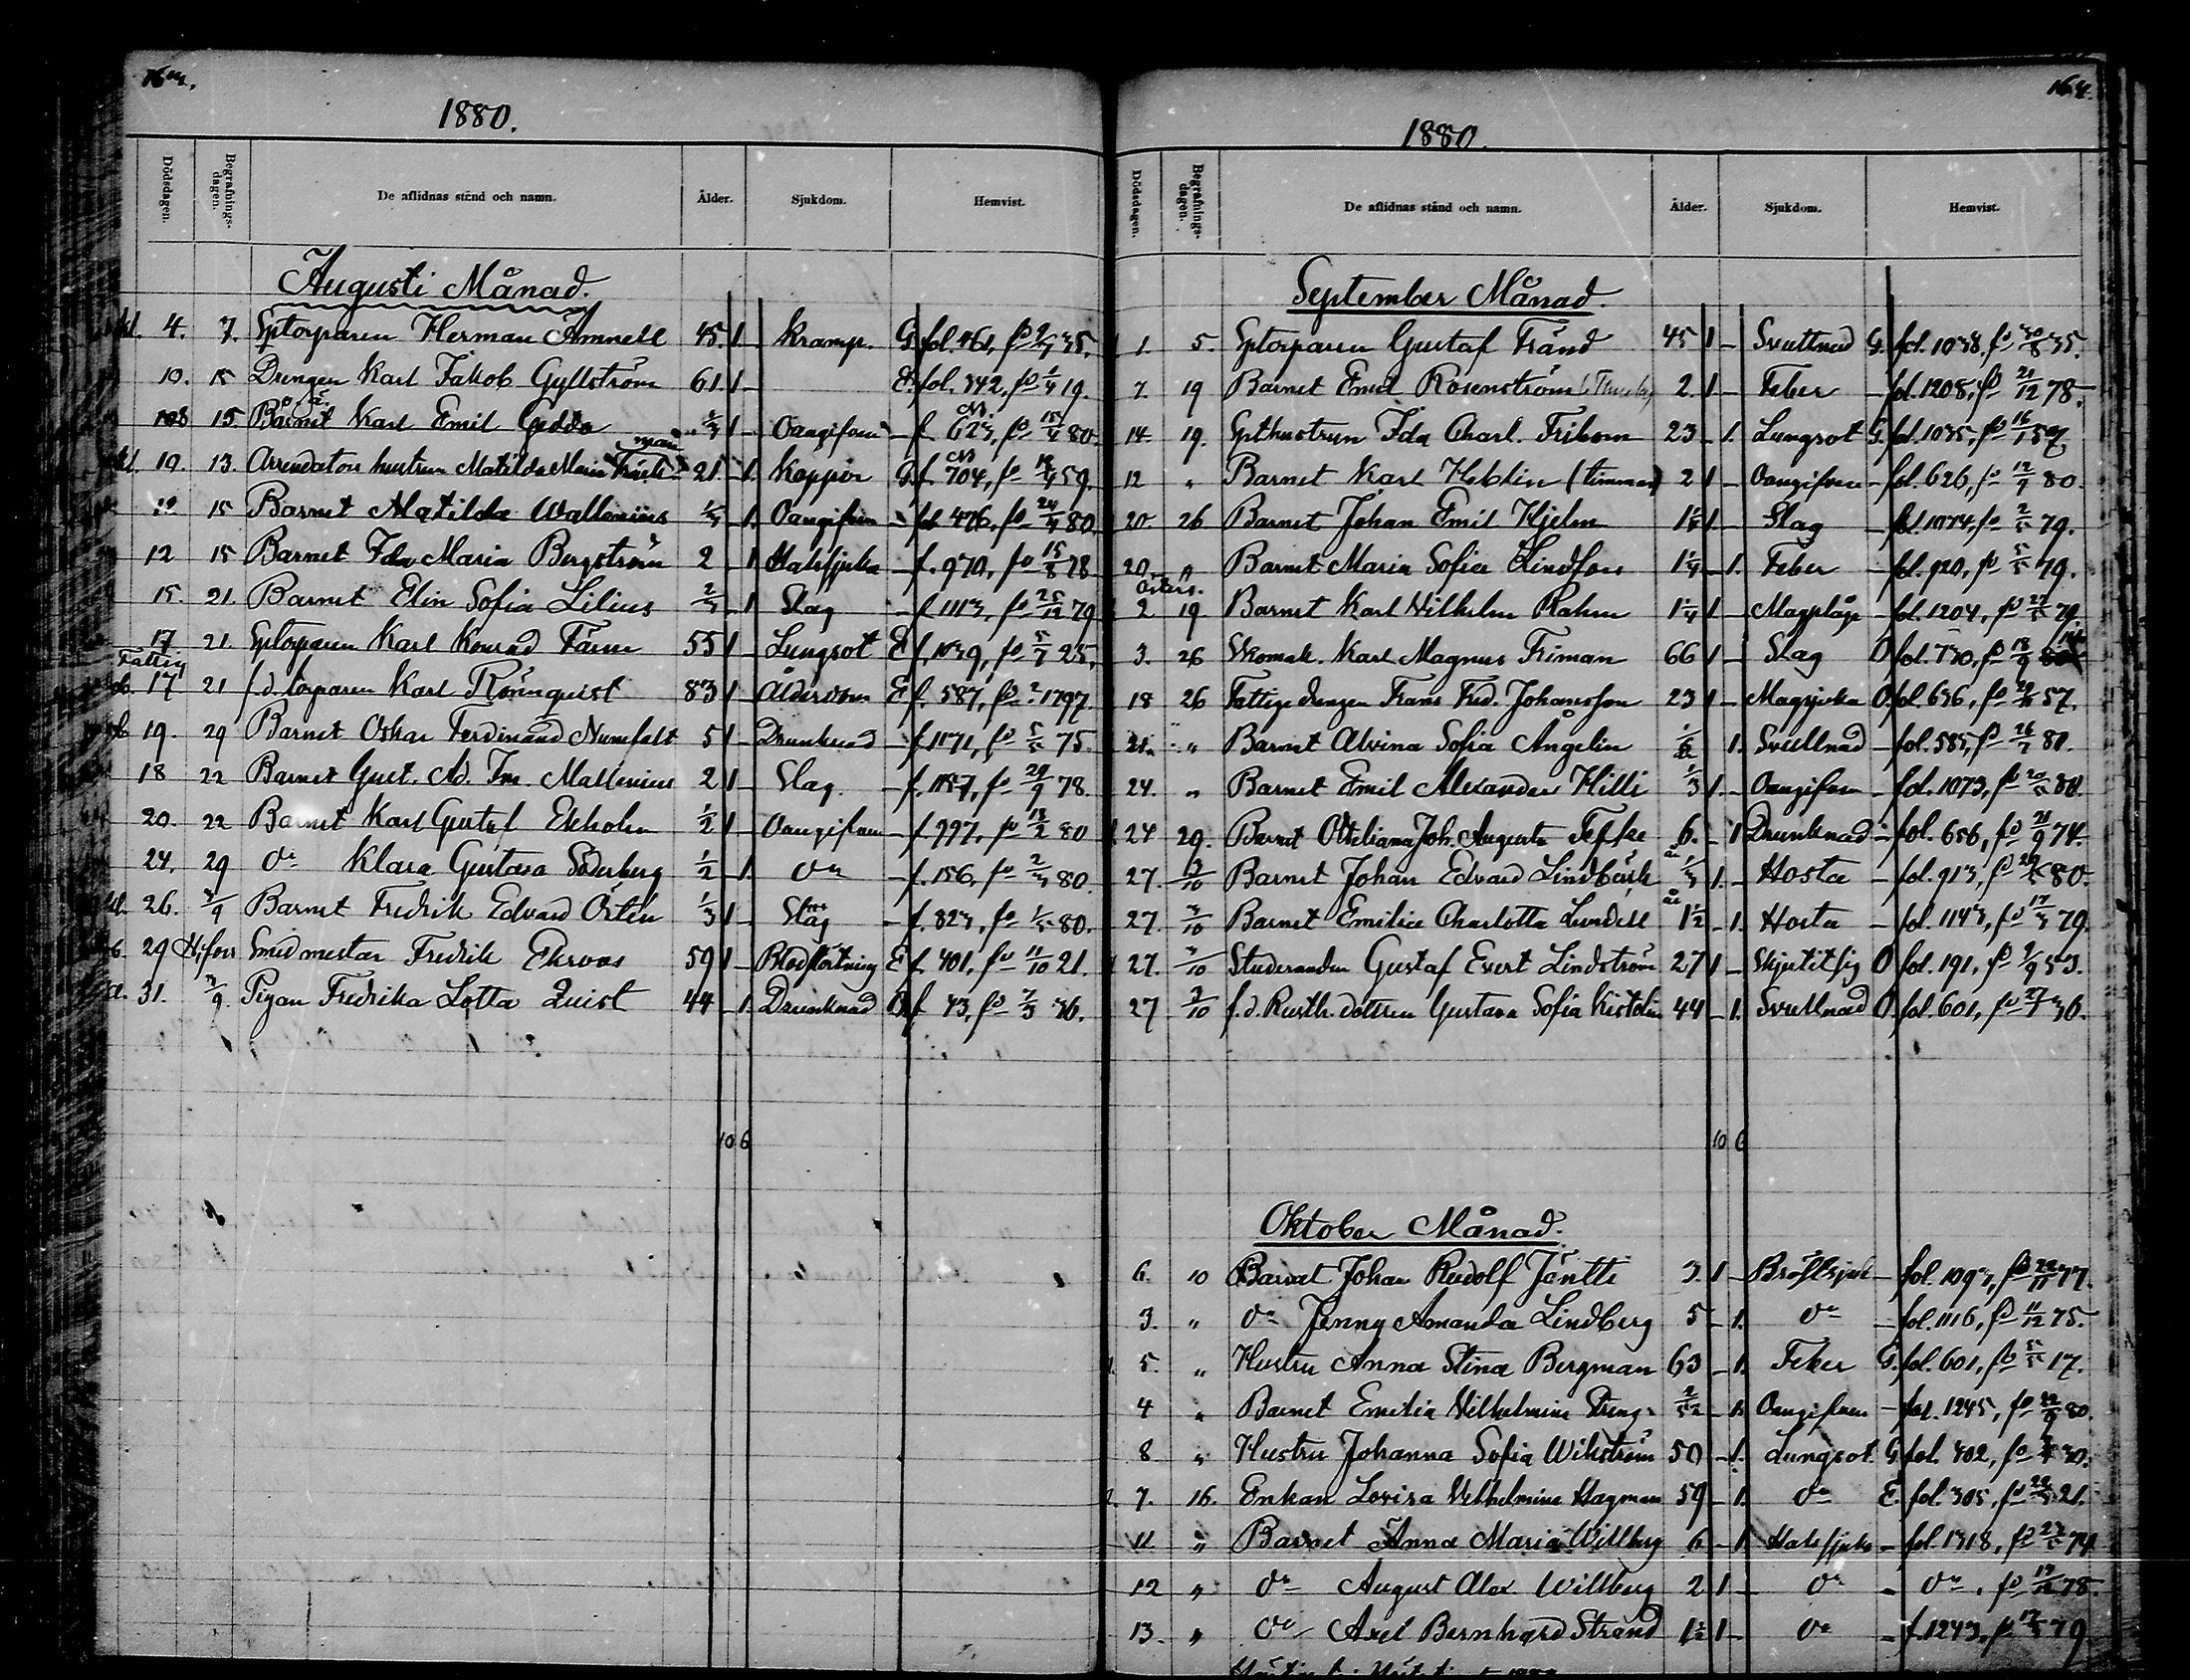 1880.
Dödsdagen. Begrafnings-dagen. De aflidnas stånd och namn. Ålder. Sjukdom. Hemvist.
Augusti Månad.
4. 7. Sptorparen Herman Amnell 45. 1 - Kramp. G. fol. 461, fd 35.
10. 15 Drengen Karl Jakob Gyllström 61. 1 - E. fol. 342, fd 1/4 19.
15 Barnet Karl Emil Gedda 1 - Oangifven - f. 623, fd 15/4 80.
10. 13. Arrendators hustrun Matilda Maria 21. - 1. Koppor G. f. 704, fd 59.
12 15 Barnet Matilda Wallenius - 1. Oangifven - fol 476, fd 24/4 80.
12 15 Barnet Ida Maria Bergström 2 - 1 Halssjuka - f. 970, fd 15/8 78
15. 21. Barnet Elin Sofia Lilius 2/3 - 1 Slag - f. 1113, fd 25/12 79
17 21. Sptorparen Karl Konrad Färm 55 1 - Lungsot E f. 1039, fd 5/7 25.
Fattig
17 21 f.d. torparen Karl Rönnqvist 83 1 - Ålderdom E f. 587, fd 1797.
19. 29 Barnet Oskar Ferdinand Numfelt 5 1 - Drunknad - f. 1171, fd 5/5 75.
18 22 Barnet Gust. Ad. Im. Mallenius 2 1 - Slag. - f. 1187, fd 29/9 78.
20. 22 Barnet Karl Gustaf Ekholm 1/2 1 - Oangifven - f. 997, fd 18/2 80
24. 29 Do Klara Gustava Söderberg 1/2 - 1. Do - f. 156, fd 2/3 80.
26. 3/9 Barnet Fredrik Edvard Östen 1/3 1 - Slag - f. 823, fd 1/5 80.
29 H:fors Smedmestar Fredrik Ekroos 59 1 - Blodstörtning E f. 401, fd 11/10 21.
31. 3/9. Pigan Fredrika Lotta Quist 44 - 1. Drunknad O. f. 43, fd 7/3 36.
10 6
164.
1880.
Dödsdagen. Begrafnings-dagen. De aflidnas stånd och namn. Ålder. Sjukdom. Hemvist.
September Månad.
1. 5. Sptorparen Gustaf Fränd 45 1 - Svullnad G. fol. 1038. fd 30/8 35.
7. 19 Barnet Emil Rosenström 2. 1 - Feber - fol. 1208, fd 21/12 78.
14. 19. Spthustrun Ida Charl. Friborn 23 - 1. Lungsot G. fol. 1035, fd 16/1 57.
12 " Barnet Karl Heblin 2 1 - Oangifven - fol. 626, fd 80.
20. 26 Barnet Johan Emil Hjelm 1 - Slag - fol. 1074, fd 2/5 79.
20. " Barnet Maria Sofia Lindfors 1 1/4 - 1. Feber - fol. 920, fd 5/5 79.
2 19 Barnet Karl Wilhelm Rahm 1 1/4 1 - Magplåga - fol. 1204, fd 79.
3. 26 Skomak. Karl Magnus Friman 66 1 - Slag O. fol. 730, fd 18/9
18 26 Fattige drengen Frans Fred. Johansson 23 1 - Magsjuka O. fol. 636, fd 57.
21. " Barnet Alvina Sofia Ångelin 1. Svullnad - fol. 585, fd 26/7 80.
24. " Barnet Emil Alexander Hilli 1/3 1. - Oangifven - fol. 1073, fd 80.
24 29. Barnet Ottiliana Joh. Augusta 6. - 1 Drunknad - fol. 656, fd 21/9 74.
27. 3/10 Barnet Johan Edvard Lindbäck 1/3 1. - Hosta - fol. 913, fd 80.
27. 3/10 Barnet Emilia Charlotta Lundell 1 1/2 - 1. Hosta - fol. 1143, fd 17/3 79.
27. 3/10 Studeranden Gustaf Evert Lindström 27 1 - Skjutit sig O fol. 191, fd 2/9 53.
27 3/10 f.d. Rusth. dottren Gustava Sofia 44 - 1. Svullnad O. fol. 601, fd 27/7 36.
10 6
Oktober Månad.
6. 10 Barnet Johan Rudolf Jäntti 3. 1 - Bröstsjuk - fol. 1093, fd 77.
3. " Do Jenny Amanda Lindberg 5 - 1. Do - fol. 1116, fd 11/12 75.
5. " Hustru Anna Stina Bergman 63 - 1. Feber G. fol. 601, fd 5/5 17.
4 " Barnet Emilia Vilhelmina Streng 2/52 - 1. Oangifven - fol. 1245, fd 22/9 80.
8. " Hustru Johanna Sofia Wikström 50 - 1. Lungsot. G. fol. 402, fd 30.
7. 16. Enkan Lovisa Vilhelmina Hagman 59 - 1. Do E. fol. 305, fd 21.
11. " Barnet Anna Maria Willberg 6 - 1 Halssjuka - fol. 1318, fd 74
12 " Do August Alex Willberg 2 1 - Do - Do. fd 78.
13. " Do Axel Bernhard Strand 1 1/2 1 - Do - f. 1243, fd 79